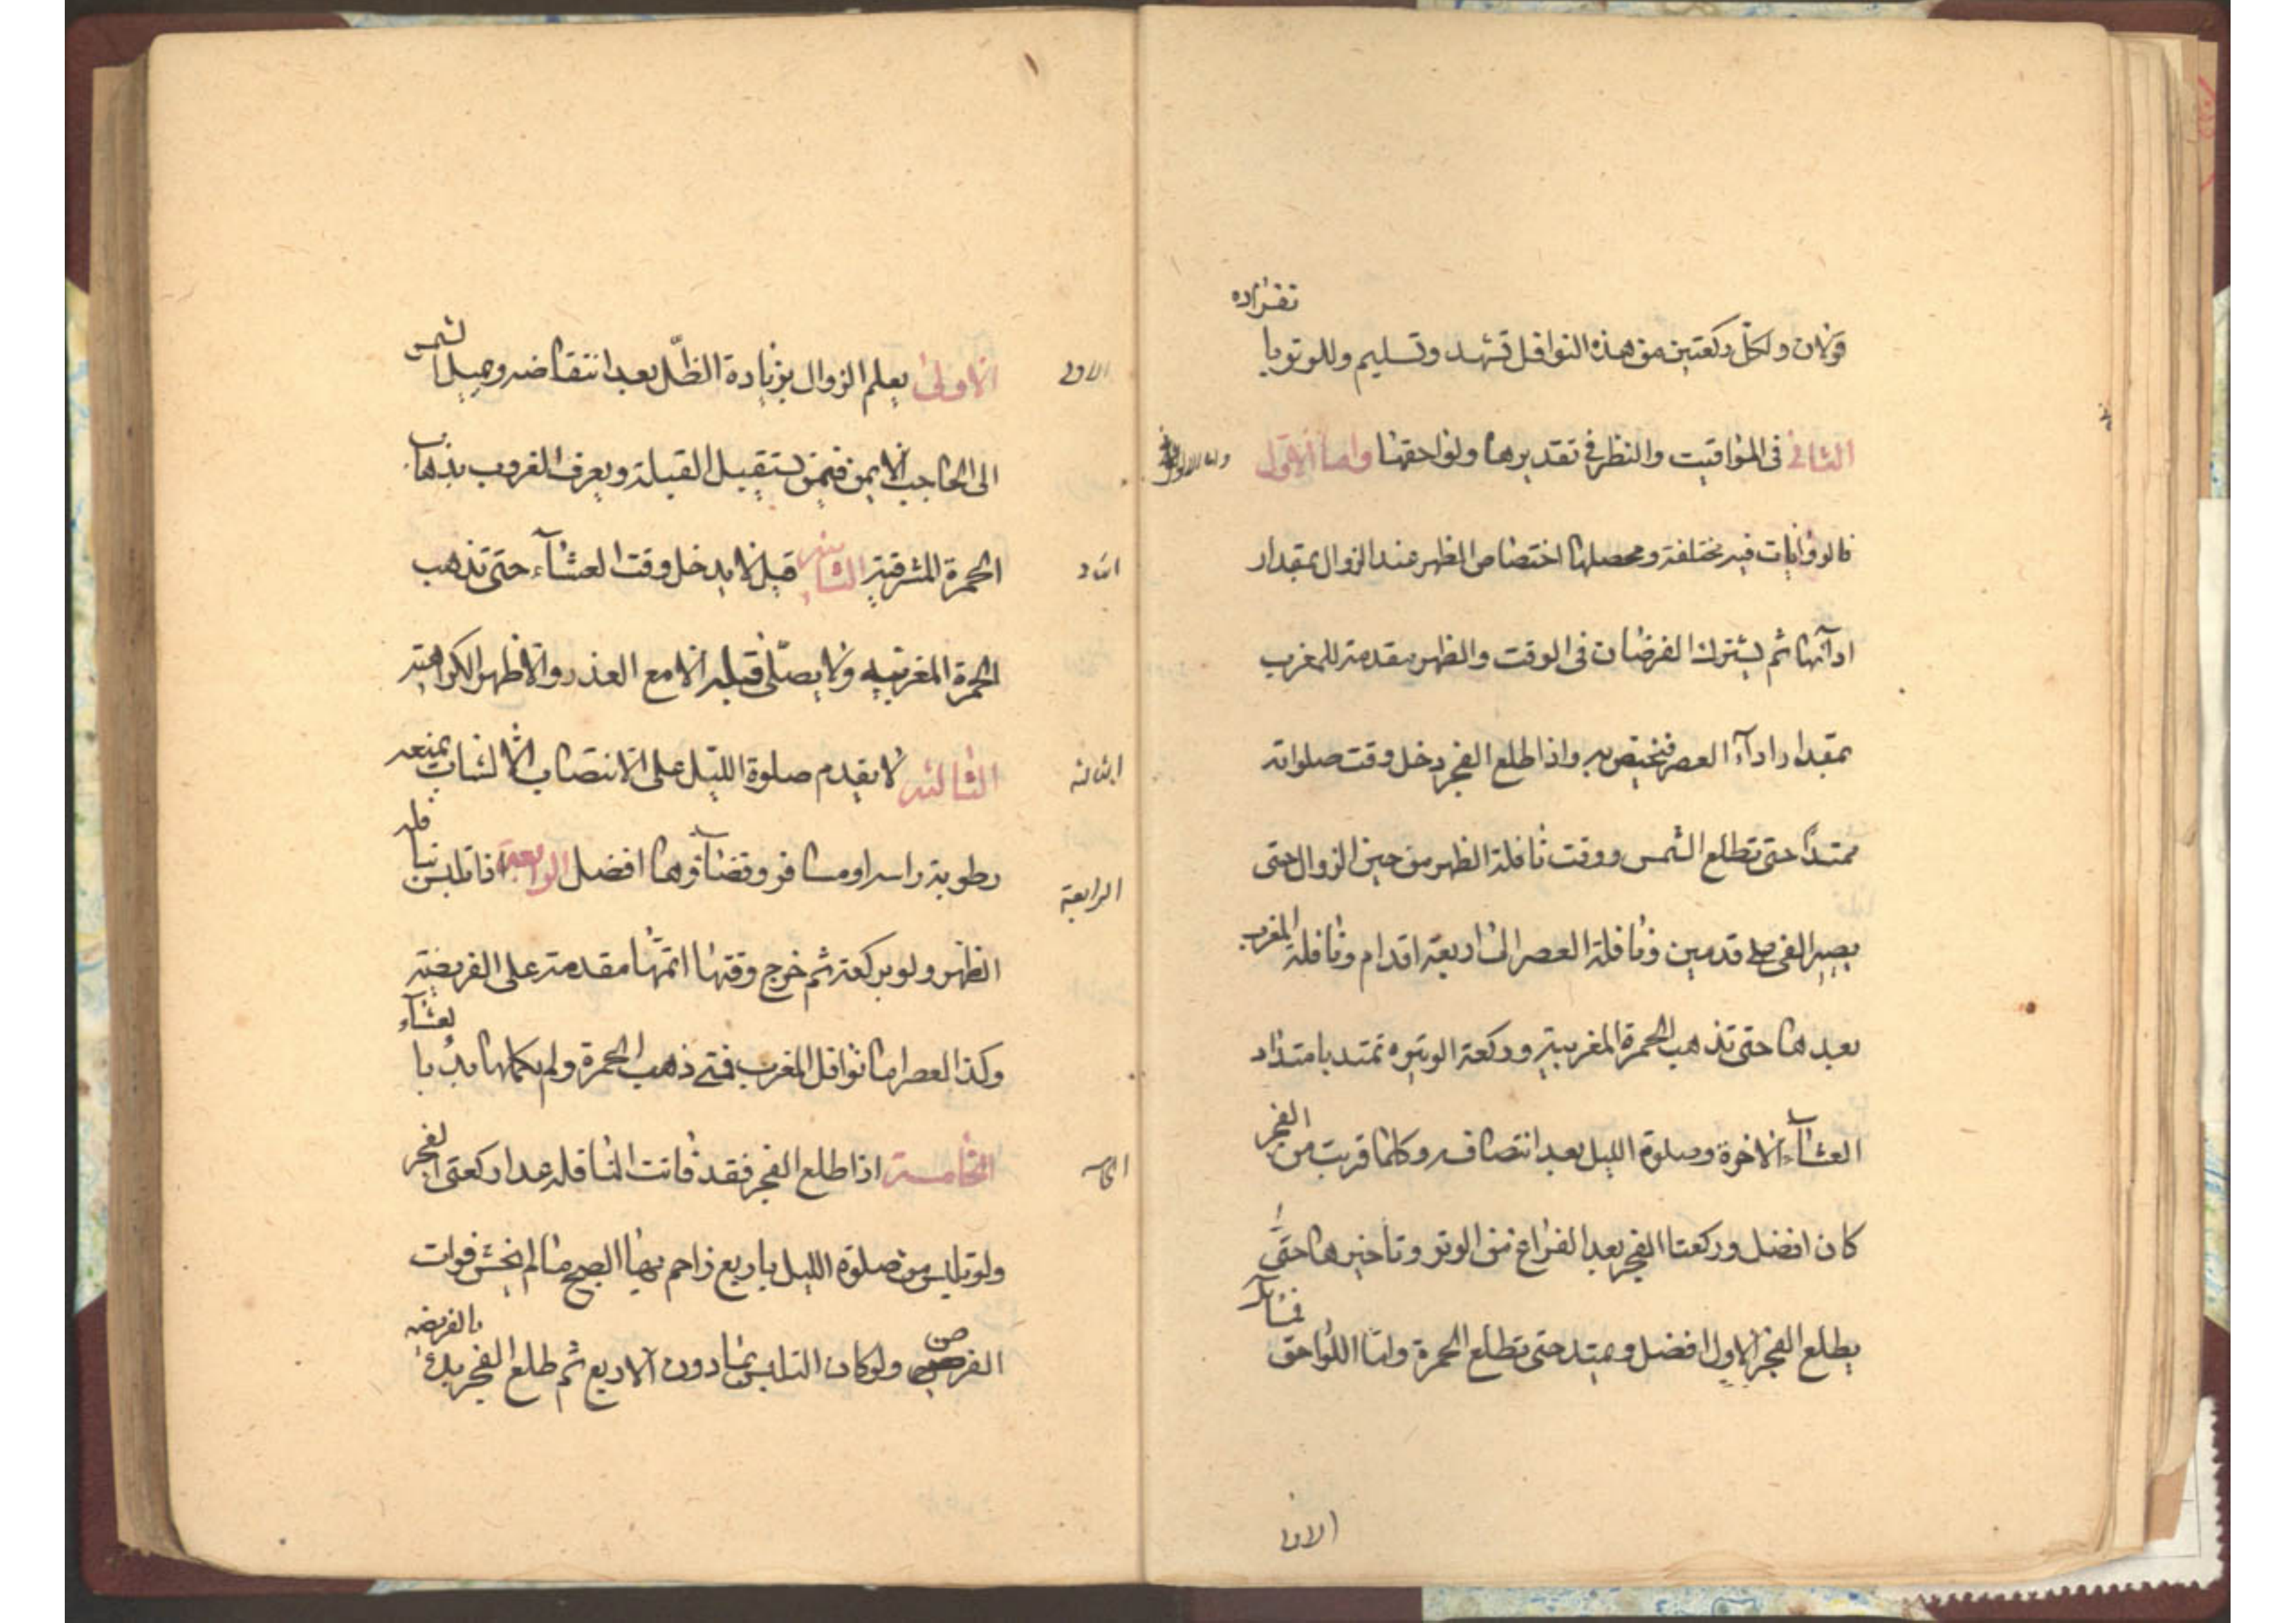 قولان ولكل ركعتين من هذه النوافل تشهد وتسليم وللوتر با
نفراده
الثاني في المواقيت والنظر في تقديرها ولواحقها واما الاول
فالروايات فيه مختلفة ومحصلها اختصاص الظهر عند الزوال بمقدار
ادائها ثم يشترك الفرضان في الوقت والظهر مقدمة للمغرب
بمقدار اداء العصر فيختص به واذا طلع الفجر دخل وقت صلواته
ممتدا حتى تطلع الشمس ووقت نافلة الظهر من حين الزوال حتى
يصير الفئ على قدمين ونافلة العصر الى اربعة اقدام ونافلة المغرب
بعدها حتى تذهب الحمرة المغربية وركعة الوتيره تمتد بامتداد
العشاء الاخرة وصلوة الليل بعد انتصافه وكلما قربت من الفجر
كان افضل وركعتا الفجر بعد الفراغ من الوتر وتاخيرها حتى
يطلع الفجر الاول افضل ويمتد حتى تطلع الحمرة واما اللواحق
فمسائل
الاولى
الاولى يعلم الزوال بزيادة الظل بعد انتقاضه وميل الشمس
الاولى
الى الحاجب الايمن فيمن يستقبل القبلة ويعرف الغروب بذهاب
الحمرة المشرقية الثانيه قيل لا يدخل وقت العشاء حتى تذهب
الحمرة المغربيه ولا يصلى قبله الا مع العذر والاظهر الكراهية
الثالثه لا يقدم صلوة الليل على الانتصاب الا لشاب يمنعه
الثالثه
رطوبة راسه او مسافر وقضاؤها افضل الرابعة اذا تلبس بنافله
الرابعة
الظهر ولو بركعة ثم خرج وقتها اتمها مقدمة على الفريضة
وكذا العصر اما نوافل المغرب فمتى ذهب الحمرة ولم يكملها بدء با
لعشاء
الخامسة اذا طلع الفجر فقد فاتت النافله عدا ركعتى الفجر
ولو تلبس من صلوة الليل باربع زاحم بها الصبح ما لم يخش فوات
الفرض ولو كان التلبس بما دون الاربع ثم طلع الفجر بدئ بالفريضه